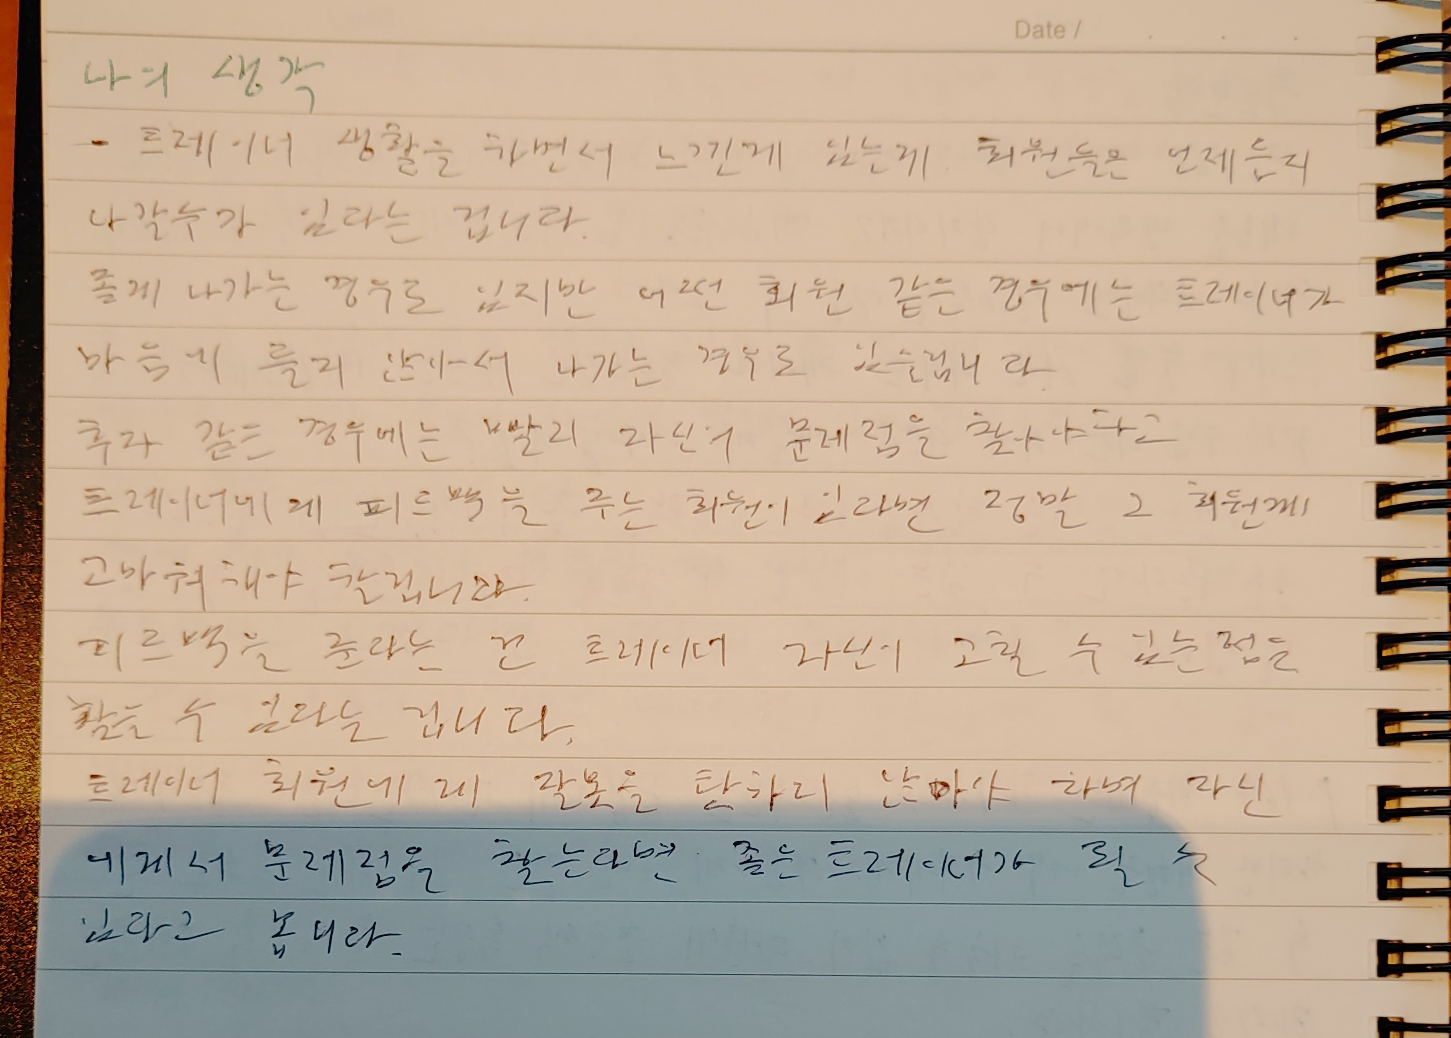 Date / . . .
나의 생각
- 트레이너 생활을 하면서 느낀게 있는게 회원들은 언제든지
나갈수가 있다는 겁니다.
좋게 나가는 경우도 있지만 어떤 회원 같은 경우에는 트레이너가
마음에 들지 않아서 나가는 경우도 있을겁니다.
후자 같은 경우에는 빨리 자신의 문제점을 찾아야하고
트레이너에게 피드백을 주는 회원이 있다면 정말 그 회원께
고마워해야 할겁니다.
피드백을 준다는 건 트레이너 자신이 고칠 수 있는점을
찾을 수 있다는 겁니다.
트레이너 회원에게 잘못을 탓하지 않아야 하며 자신
에게서 문제점을 찾는다면 좋은 트레이너가 될 수
있다고 봅니다.